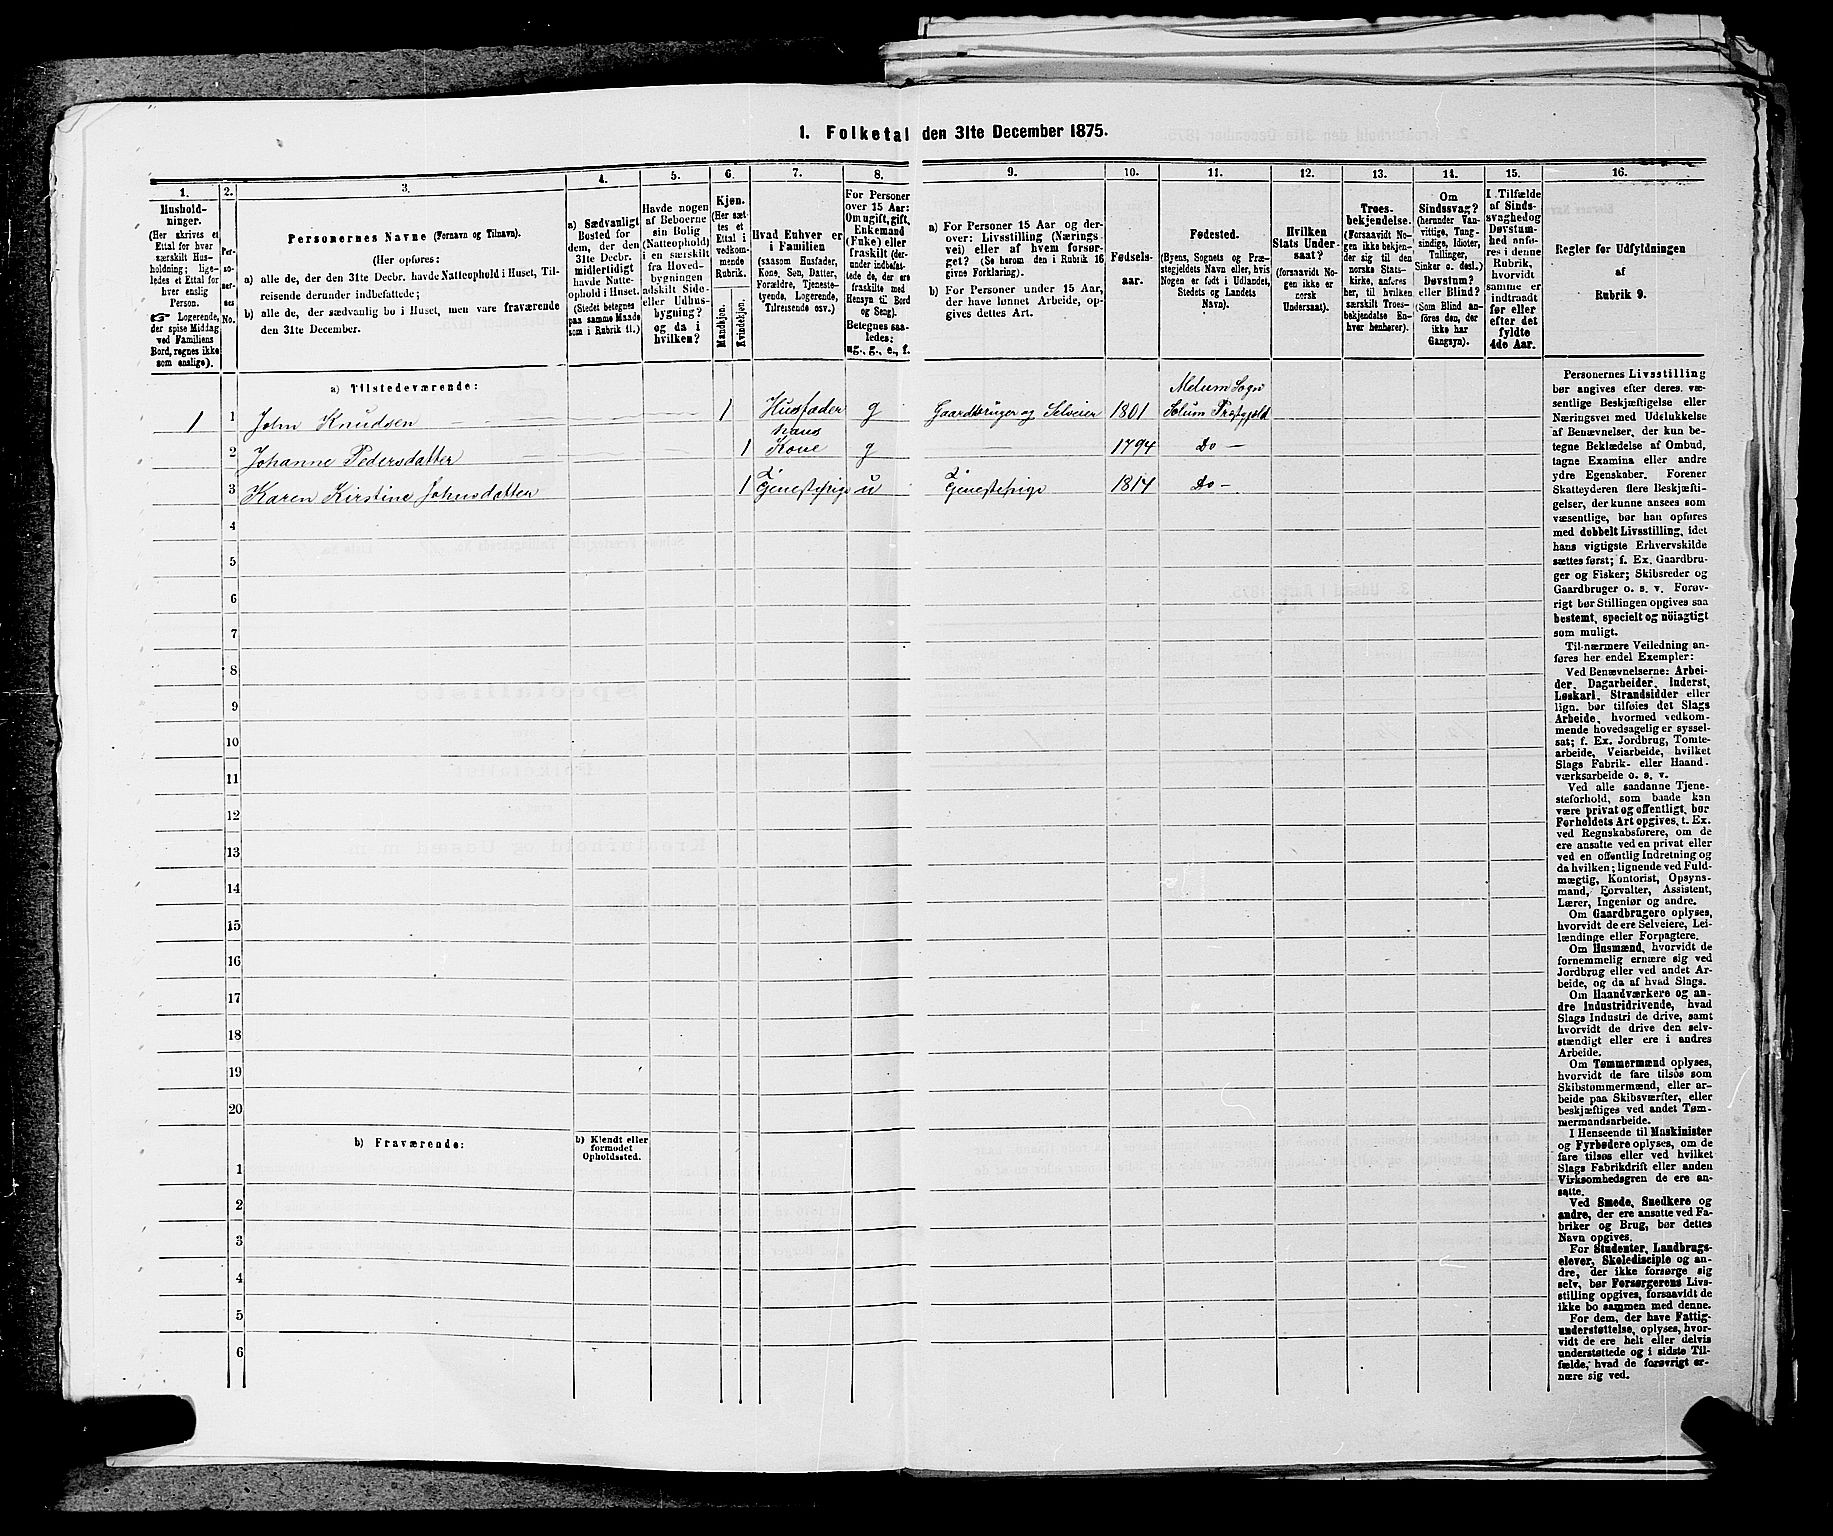 1. Folketal den 31te December 1875.
1. 2. 3. 4. 5. 6. 7. 8. 9. 10. 11. 12. 13. 14. 15. 16.
Hushold-
ninger.
(Her skrives et
Ettal for hver
særskilt Hus-
holdning; lige-
ledes et Ettal for
hver enslig
Person.
☞ Logerende,
der spise Middag
ved Familiens
Bord, regnes ikke
som enslige).
Per-
so-
ner-
nes
No.
Personernes Navne (Fornavn og Tilnavn).
(Her opføres:
a) alle de, der den 31te Decbr. havde Natteophold i Huset, Til-
reisende derunder indbefattede;
b) alle de, der sædvanlig bo i Huset, men vare fraværende
den 31te December.
a) Sædvanligt
Bosted for
dem, der den
31te Decbr.
midlertidigt
havde Natte-
ophold i Huset.
(Stedet betegnes
paa samme Maade
som i Rubrik 11.)
Havde nogen
af Beboerne
sin Bolig
(Natteophold)
i en særskilt
fra Hoved-
bygningen
adskilt Side-
eller Udhus-
bygning?
og da i
hvilken?
Kjøn.
(Her sæt-
tes et
Ettal i
vedkom-
mende
Rubrik.
Mandkjøn.
Kvindekjøn.
Hvad Enhver er
i Familien
(saasom Husfader,
Kone, Søn, Datter,
Forældre, Tjeneste-
tyende, Logerende,
Tilreisende osv.)
For Personer
over 15 Aar:
Om ugift, gift,
Enkemand
(Enke) eller
fraskilt (der-
under indbefat-
tede de, der ere
fraskilte med
Hensyn til Bord
og Seng).
Betegnes saa-
ledes:
ug., g., e., f.
a) For Personer 15 Aar og der-
over: Livsstilling (Nærings-
vei) eller af hvem forsør-
get? (Se herom den i Rubrik 16
givne Forklaring).
b) For Personer under 15 Aar,
der have lønnet Arbeide, op-
gives dettes Art.
Fødsels-
aar.
Fødested.
(Byens, Sognets og Præ-
stegjeldets Navn eller, hvis
Nogen er født i Udlandet,
Stedets og Landets
Navn).
Hvilken
Stats Under-
saat?
(forsaavidt No-
gen ikke er
norsk
Undersaat).
Troes-
bekjendelse.
(Forsaavidt No-
gen ikke bekjen-
der sig til den
norske Stats-
kirke, anføres
her, til hvilken
særskilt Troes-
bekjendelse En-
hver henhører).
Om
Sindssvag?
(herunder Van-
vittige, Tung-
sindige, Idioter,
Tullinger,
Sinker o. desl.)
Døvstum?
eller Blind?
(Som Blind an-
føres den, der
ikke har
Gangsyn).
I Tilfælde
af Sinds-
svaghed og
Døvstum-
hed anfø-
res i denne
Rubrik,
hvorvidt
samme er
indtraadt
før eller
efter det
fyldte
4de Aar.
Regler for Udfyldningen
af
Rubrik 9.
a) Tilstedeværende:
Melum Sogn
1 1 John Knudsen 1 Husfader g Gaardbruger og Selveier 1801 Solum Prestgjeld
hans
2 Johanne Pedersdatter 1 Kone g 1794 Do —
3 Karen Kirstine Johnsdatter 1 Tjenestepige u Tjenestepige 1814 Do —
4
5
6
7
8
9
10
11
12
13
14
15
16
17
18
19
20
b) Fraværende:
b) Kjendt eller
formodet
Opholdssted.
1
2
3
4
5
6
Personernes Livsstilling
bør angives efter deres væ-
sentlige Beskjæftigelse eller
Næringsvei med Udelukkelse
af Benævnelser, der kun be-
tegne Beklædelse af Ombud,
tagne Examina eller andre
ydre Egenskaber. Forener
Skatteyderen flere Beskjæfti-
gelser, der kunne ansees som
væsentlige, bør han opføres
med dobbelt Livsstilling, idet
hans vigtigste Erhvervskilde
sættes først; f. Ex. Gaardbru-
ger og Fisker; Skibsreder og
Gaardbruger o. s. v. Forøv-
rigt bør Stillingen opgives saa
bestemt, specielt og nöiagtigt
som muligt.
Til nærmere Veiledning an-
føres her endel Exempler:
Ved Benævnelserne: Arbei-
der, Dagarbeider, Inderst,
Løskarl, Strandsidder eller
lign. bør tilføies det Slags
Arbeide, hvormed vedkom-
mende hovedsagelig er syssel-
sat; f. Ex. Jordbrug, Tomte-
arbeide, Veiarbeide, hvilket
Slags Fabrik- eller Haand-
værksarbeide o. s. v.
Ved alle saadanne Tjene-
steforhold, som baade kan
være privat og offentligt, bør
Forholdets Art opgives, t. Ex.
ved Regnskabsførere, om de
ere ansatte ved en privat eller
ved en offentlig Indretning og
da hvilken; lignende ved Fuld-
mægtig, Kontorist, Opsyns-
mand, Forvalter, Assistent,
Lærer, Ingeniør og andre.
Om Gaardbrugere oplyses,
hvorvidt de ere Selveiere, Lei-
lændinge eller Forpagtere.
Om Husmænd, hvorvidt de
fornemmelig ernære sig ved
Jordbrug eller ved andet Ar-
beide, og da af hvad Slags.
Om Haandværkere og an-
dre Industridrivende, hvad
Slags Industri de drive, samt
hvorvidt de drive den selv-
stændigt eller ere i andres
Arbeide.
Om Tømmermænd oplyses,
hvorvidt de fare tilsøs som
Skibstømmermænd, eller ar-
beide paa Skibsværfter, eller
beskjæftiges ved andet Tøm-
mermandsarbeide.
I Henseende til Maskinister
og Fyrbødere oplyses, om de
fare tilsøs eller ved hvilket
Slags Fabrikdrift eller anden
Virksomhedsgren de ere an-
satte.
Ved Smede, Snedkere og
andre, der ere ansatte ved Fa-
briker og Brug, bør dettes
Navn opgives.
For Studenter, Landbrugs-
elever, Skoledisciple og an-
dre, der ikke forsørge sig
selv, bør Forsørgerens Livs-
stilling opgives, forsaavidt de
ikke bo sammen med denne.
For dem, der have Fattig-
understøttelse, oplyses, hvor-
vidt de ere helt eller delvis
understøttede og i sidste Til-
fælde, hvad de forøvrigt er-
nære sig ved.